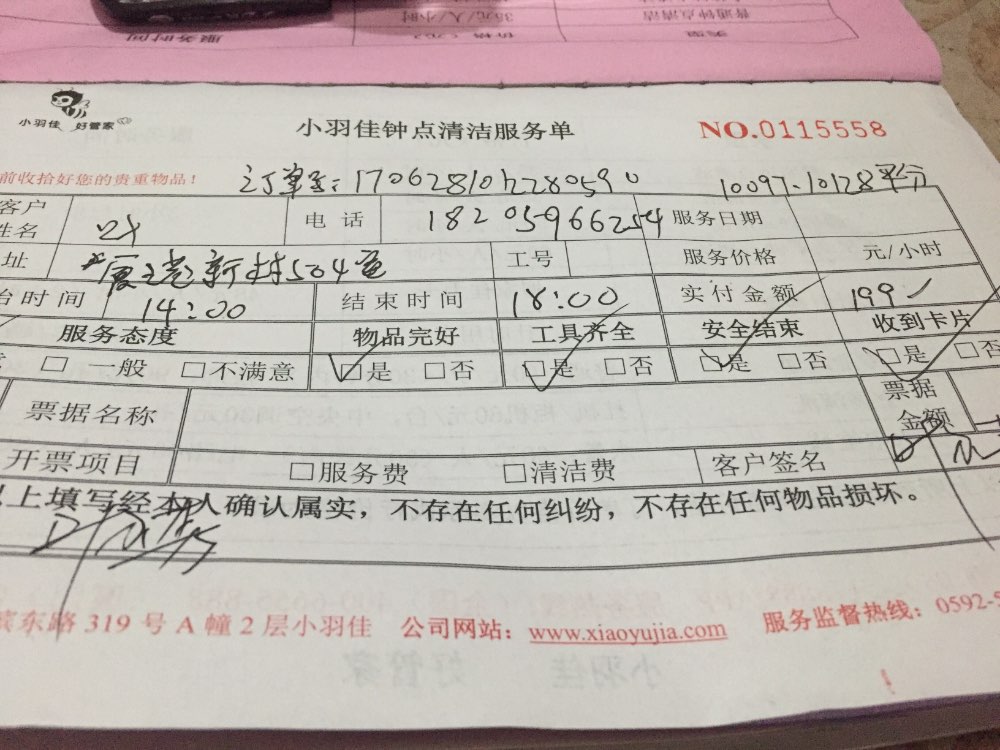 普通钟点清洁 35元/人/小时
类型 服务时间
小羽佳 好管家
小羽佳钟点清洁服务单 NO.0115558
前收拾好您的贵重物品!
订单号:170628101228059 10097-10128平分
客户姓名 叶 电话 18205966254 服务日期
址 新村504 工号 服务价格 元/小时
台时间 14:00 结束时间 18:00 实付金额 199
服务态度 物品完好 工具齐全 安全结束 收到卡片
□一般 □不满意 □是 □否 □是 □否 □是 □否 □是 □否
票据名称 票据金额
开票项目 □服务费 □清洁费 客户签名
上填写经本人确认属实,不存在任何纠纷,不存在任何物品损坏。
东路319号A幢2层小羽佳 公司网站:www.xiaoyujia.com 服务监督热线:0592-5